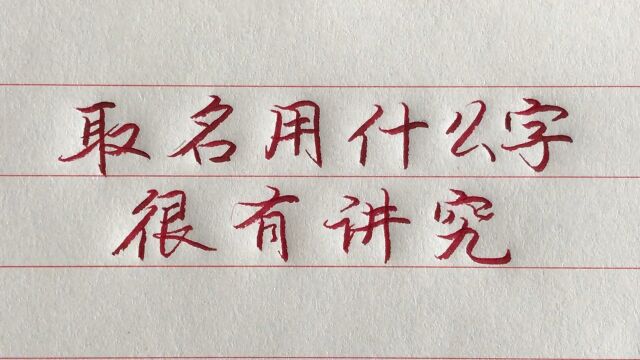 取名用什么字
很有讲究